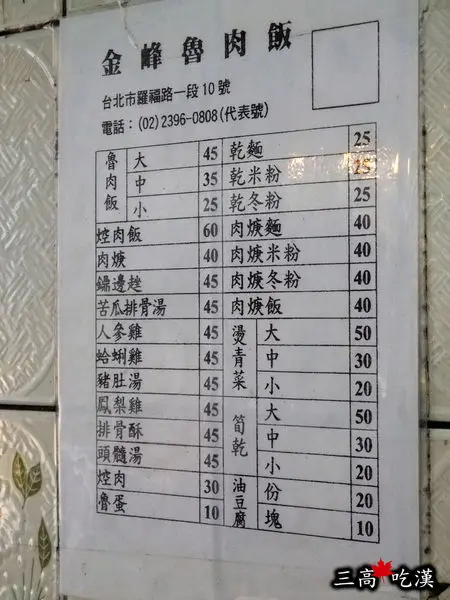 金峰魯肉飯
台北市羅福路一段10號
電話：(02)2396-0808(代表號)
魯肉飯 大 45 乾麵 25
中 35 乾米粉 25
小 25 乾冬粉 25
焢肉飯 60 肉焿麵 40
肉焿 40 肉焿米粉 40
鍋邊趖 45 肉焿冬粉 40
苦瓜排骨湯 45 肉焿飯 40
人參雞 45 燙青菜 大 50
蛤蜊雞 45 中 30
豬肚湯 45 小 20
鳳梨雞 45 筍乾 大 50
排骨酥 45 中 30
頭髓湯 45 小 20
焢肉 30 油豆腐 份 20
魯蛋 10 塊 10
三高吃漢